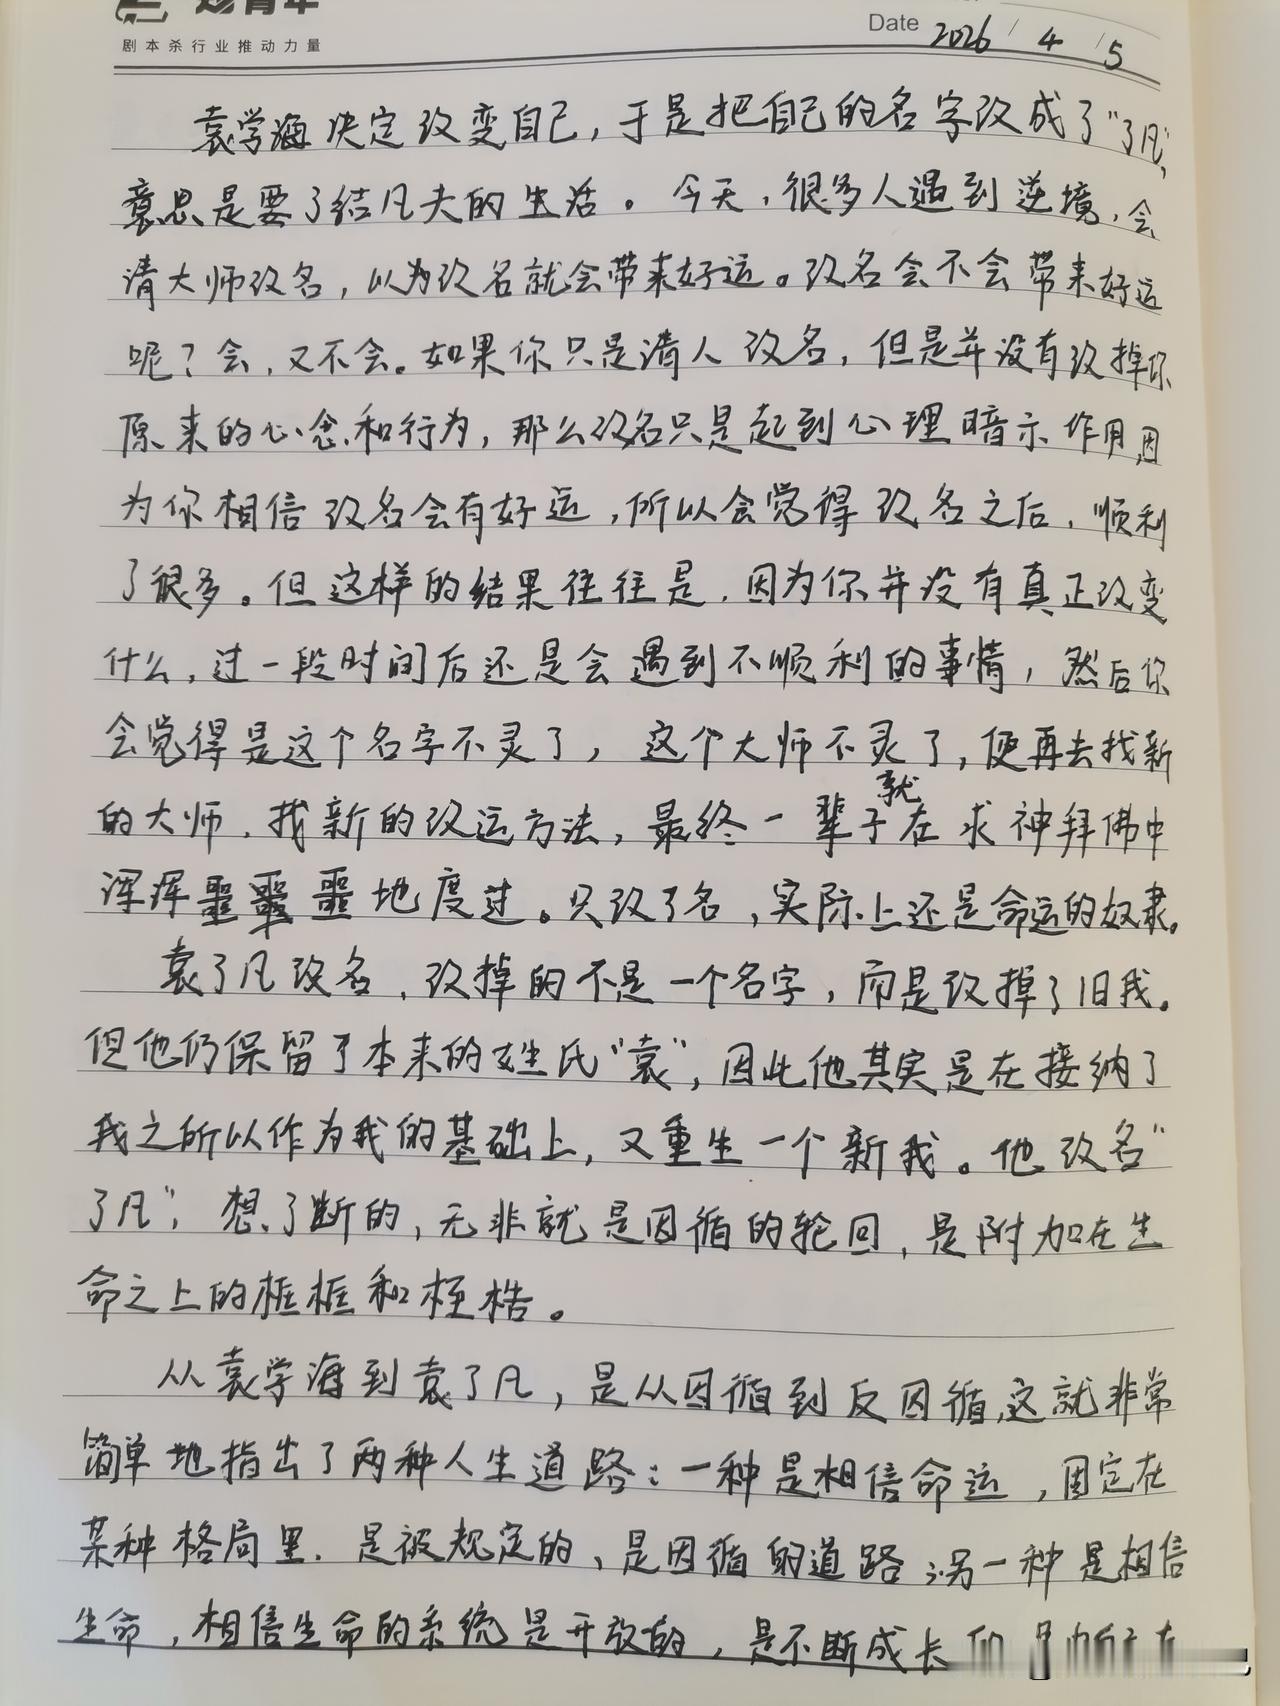 青年
剧本杀行业推动力量
Date 2026 / 4 / 5
袁学海决定改变自己，于是把自己的名字改成了“了凡”，
意思是要了结凡夫的生活。今天，很多人遇到逆境，会
请大师改名，以为改名就会带来好运。改名会不会带来好运
呢？会，又不会。如果你只是请人改名，但是并没有改掉你
原来的心念和行为，那么改名只是起到心理暗示作用，因
为你相信改名会有好运，所以会觉得改名之后，顺利
了很多。但这样的结果往往是，因为你并没有真正改变
什么，过一段时间后还是会遇到不顺利的事情，然后你
会觉得是这个名字不灵了，这个大师不灵了，便再去找新
的大师，找新的改运方法，最终一辈子就在求神拜佛中
浑浑噩噩地度过。只改了名，实际上还是命运的奴隶。
袁了凡改名，改掉的不是一个名字，而是改掉了旧我。
但他仍保留了本来的姓氏“袁”，因此他其实是在接纳了
我之所以作为我的基础上，又重生一个新我。他改名“
了凡”，想了断的，无非就是因循的轮回，是附加在生
命之上的框框和桎梏。
从袁学海到袁了凡，是从因循到反因循，这就非常
简单地指出了两种人生道路：一种是相信命运，固定在
某种格局里，是被规定的、是因循的道路；另一种是相信
生命，相信生命的系统是开放的，是不断成长